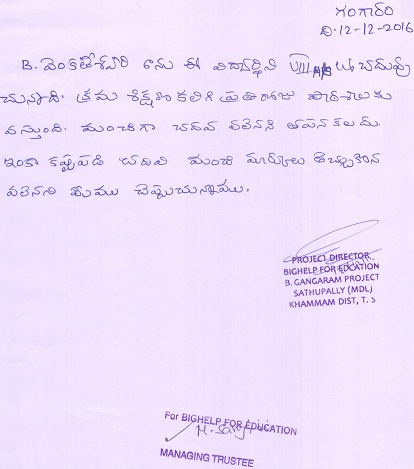 గంగారం
ది.12-12-2016
B. వెంకటేశ్వరి అను ఈ విద్యార్థిని VIII చదువు
చున్నాది. క్రమ శిక్షణ కలిగి ప్రతిరోజు పాఠశాలకు
వస్తుంది. మంచిగా చదవ వలెనని తపన కలదు.
ఇంకా కష్టపడి చదివి మంచి మార్కులు తెచ్చుకొన
వలెనని మేము చెప్పుచున్నాము.
PROJECT DIRECTOR
BIGHELP FOR EDCATION
B. GANGARAM PROJECT
SATHUPALLY (MDL)
KHAMMAM DIST, T. S
For BIGHELP FOR EDUCATION
MANAGING TRUSTEE